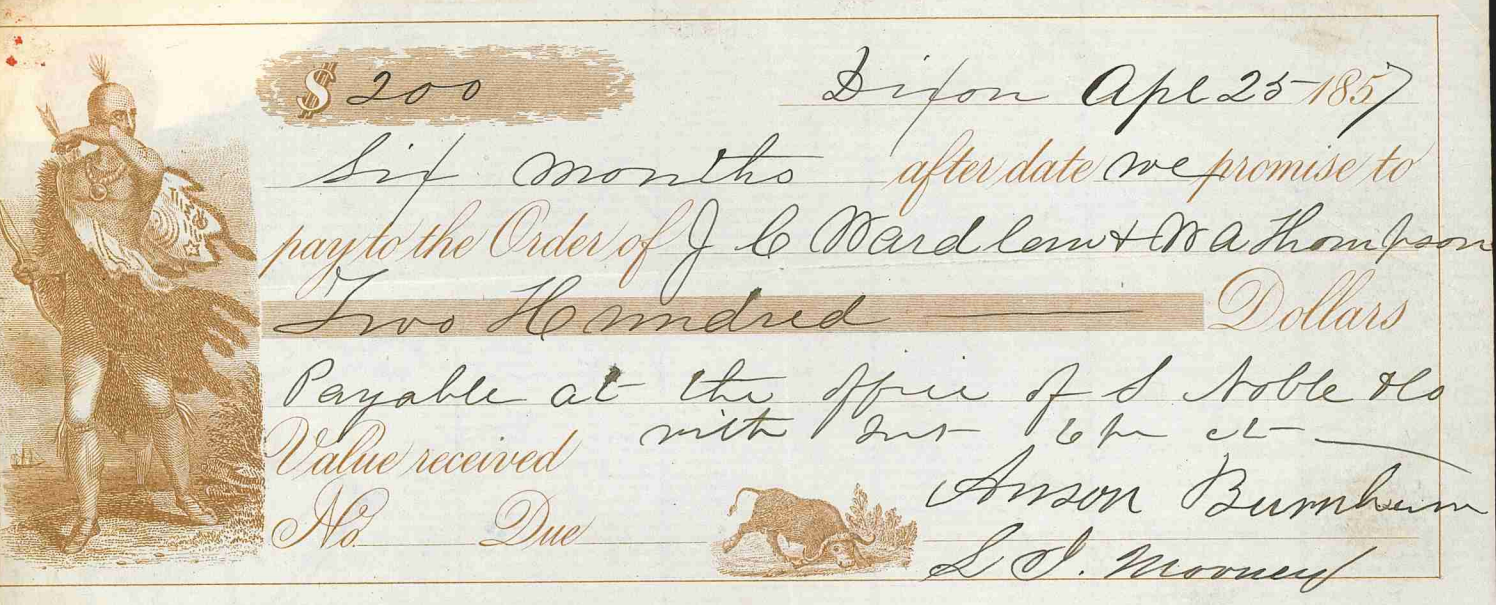 $ 200 Dixon Apl 25 1857
Six months after date we promise to
pay to the Order of J C Wardlaw & W A Thompson
Two Hundred Dollars
Payable at the office of S Noble & Co
Value received with Int 6 pr ct
Anson Burnham
No. Due
S I. Mooney